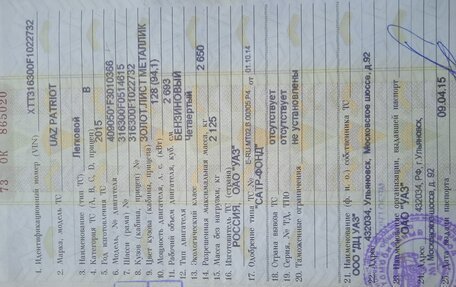 73 ОК 865020
1. Идентификационный номер (VIN) XTT316300F1022732
2. Марка, модель ТС UAZ PATRIOT
3. Наименование (тип ТС) Легковой
4. Категория ТС (А, В, С, D, прицеп) В
5. Год изготовления ТС 2015
6. Модель, № двигателя 409050*F3010366
7. Шасси (рама) № 316300F0514615
8. Кузов (кабина, прицеп) № 316300F1022732
9. Цвет кузова (кабины, прицепа) ЗОЛОТ.ЛИСТ МЕТАЛЛИК
10. Мощность двигателя, л. с. (кВт) 128 (94,1)
11. Рабочий объем двигателя, куб. см 2 693
12. Тип двигателя БЕНЗИНОВЫЙ
13. Экологический класс Четвертый
14. Разрешенная максимальная масса, кг 2 650
15. Масса без нагрузки, кг 2 125
16. Изготовитель ТС (страна) РОССИЯ, ОАО "УАЗ"
17. Одобрение типа ТС № E-RU.MT02.B.00305.P4 от 01.10.14
"САТР-ФОНД"
18. Страна вывоза ТС отсутствует
19. Серия, № ТД, ТПО отсутствует
20. Таможенные ограничения не установлены
21. Наименование (ф. и. о.) собственника ТС
ООО "ДЦ УАЗ"
22. Адрес 432034, Ульяновск, Московское шоссе, д.92
23. Наименование организации, выдавшей паспорт
ОАО "УАЗ"
24. Адрес 432034, РФ, г.Ульяновск,
Московское шоссе, д. 92
25. Дата выдачи паспорта 09.04.15